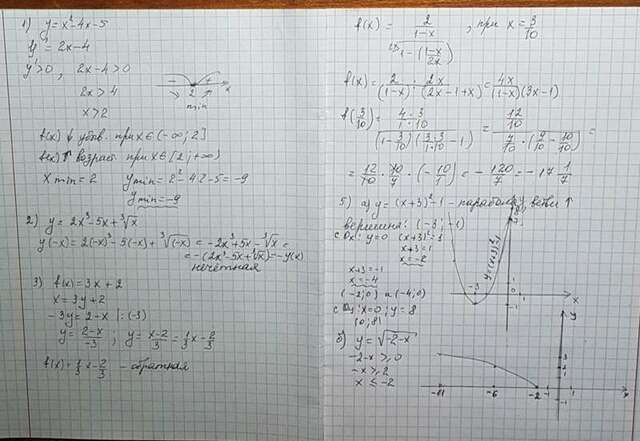 1) y = x² - 4x - 5
y' = 2x - 4
y' > 0, 2x - 4 > 0
2x > 4
x > 2
- + 2 x
min
f(x) ↓ убыв. при x ∈ (-∞; 2]
f(x) ↑ возраст при x ∈ [2; +∞)
x min = 2 y min = 2² - 4·2 - 5 = -9
y min = -9
2) y = 2x³ - 5x + ∛x
y(-x) = 2(-x)³ - 5(-x) + ∛(-x) = -2x³ + 5x - ∛x =
= -(2x³ - 5x + ∛x) = -y(x)
нечётная
3) f(x) = 3x + 2
x = 3y + 2
-3y = 2 - x | : (-3)
y = (2-x)/-3 ; y = (x-2)/3 = 1/3 x - 2/3
f(x) = 1/3 x - 2/3 - обратная
f(x) = (2/(1-x))/(1 - ((1-x)/2x)), при x = 3/10
f(x) = 2/(1-x) · 2x/(2x-1+x) = 4x/((1-x)(3x-1))
f(3/10) = (4·3/1·10)/((1 - 3/10)(3·3/1·10 - 1)) = (12/10)/(7/10 · (9/10 - 10/10)) =
= 12/10 · 10/7 · (-10/1) = -120/7 = -17 1/7
5) а) y = (x+3)² - 1 - парабола, ветви ↑
вершина: (-3; -1)
с Ox: y = 0 (x+3)² = 1
x + 3 = 1
x = -2
x + 3 = -1
x = -4
(-2; 0) и (-4; 0)
с Oy: x = 0; y = 8
(0; 8)
y = (x+3)² - 1
-3 x
б) y = √(-2-x)
-2 - x ≥ 0
-x ≥ 2
x ≤ -2
y
3
2
1
-11 -6 -2 -1 1 x